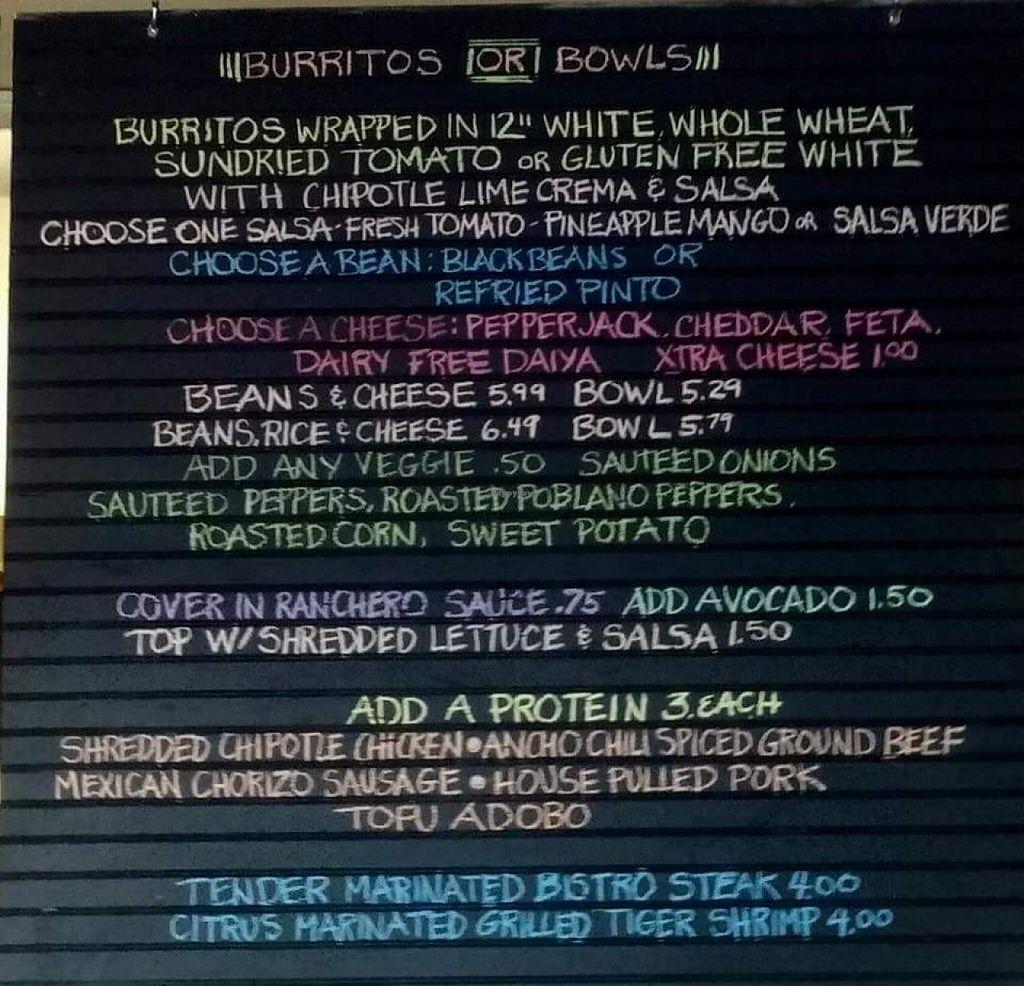 BURRITOS OR BOWLS
BURRITOS WRAPPED IN 12" WHITE, WHOLE WHEAT,
SUNDRIED TOMATO OR GLUTEN FREE WHITE
WITH CHIPOTLE LIME CREMA & SALSA
CHOOSE ONE SALSA-FRESH TOMATO-PINEAPPLE MANGO OR SALSA VERDE
CHOOSE A BEAN: BLACK BEANS OR
REFRIED PINTO
CHOOSE A CHEESE: PEPPERJACK, CHEDDAR, FETA,
DAIRY FREE DAIYA XTRA CHEESE 1.00
BEANS & CHEESE 5.99 BOWL 5.29
BEANS, RICE & CHEESE 6.49 BOWL 5.79
ADD ANY VEGGIE .50 SAUTEED ONIONS
SAUTEED PEPPERS, ROASTED POBLANO PEPPERS,
ROASTED CORN, SWEET POTATO
COVER IN RANCHERO SAUCE .75 ADD AVOCADO 1.50
TOP W/ SHREDDED LETTUCE & SALSA 1.50
ADD A PROTEIN 3. EACH
SHREDDED CHIPOTLE CHICKEN • ANCHO CHILI SPICED GROUND BEEF
MEXICAN CHORIZO SAUSAGE • HOUSE PULLED PORK
TOFU ADOBO
TENDER MARINATED BISTRO STEAK 4.00
CITRUS MARINATED GRILLED TIGER SHRIMP 4.00